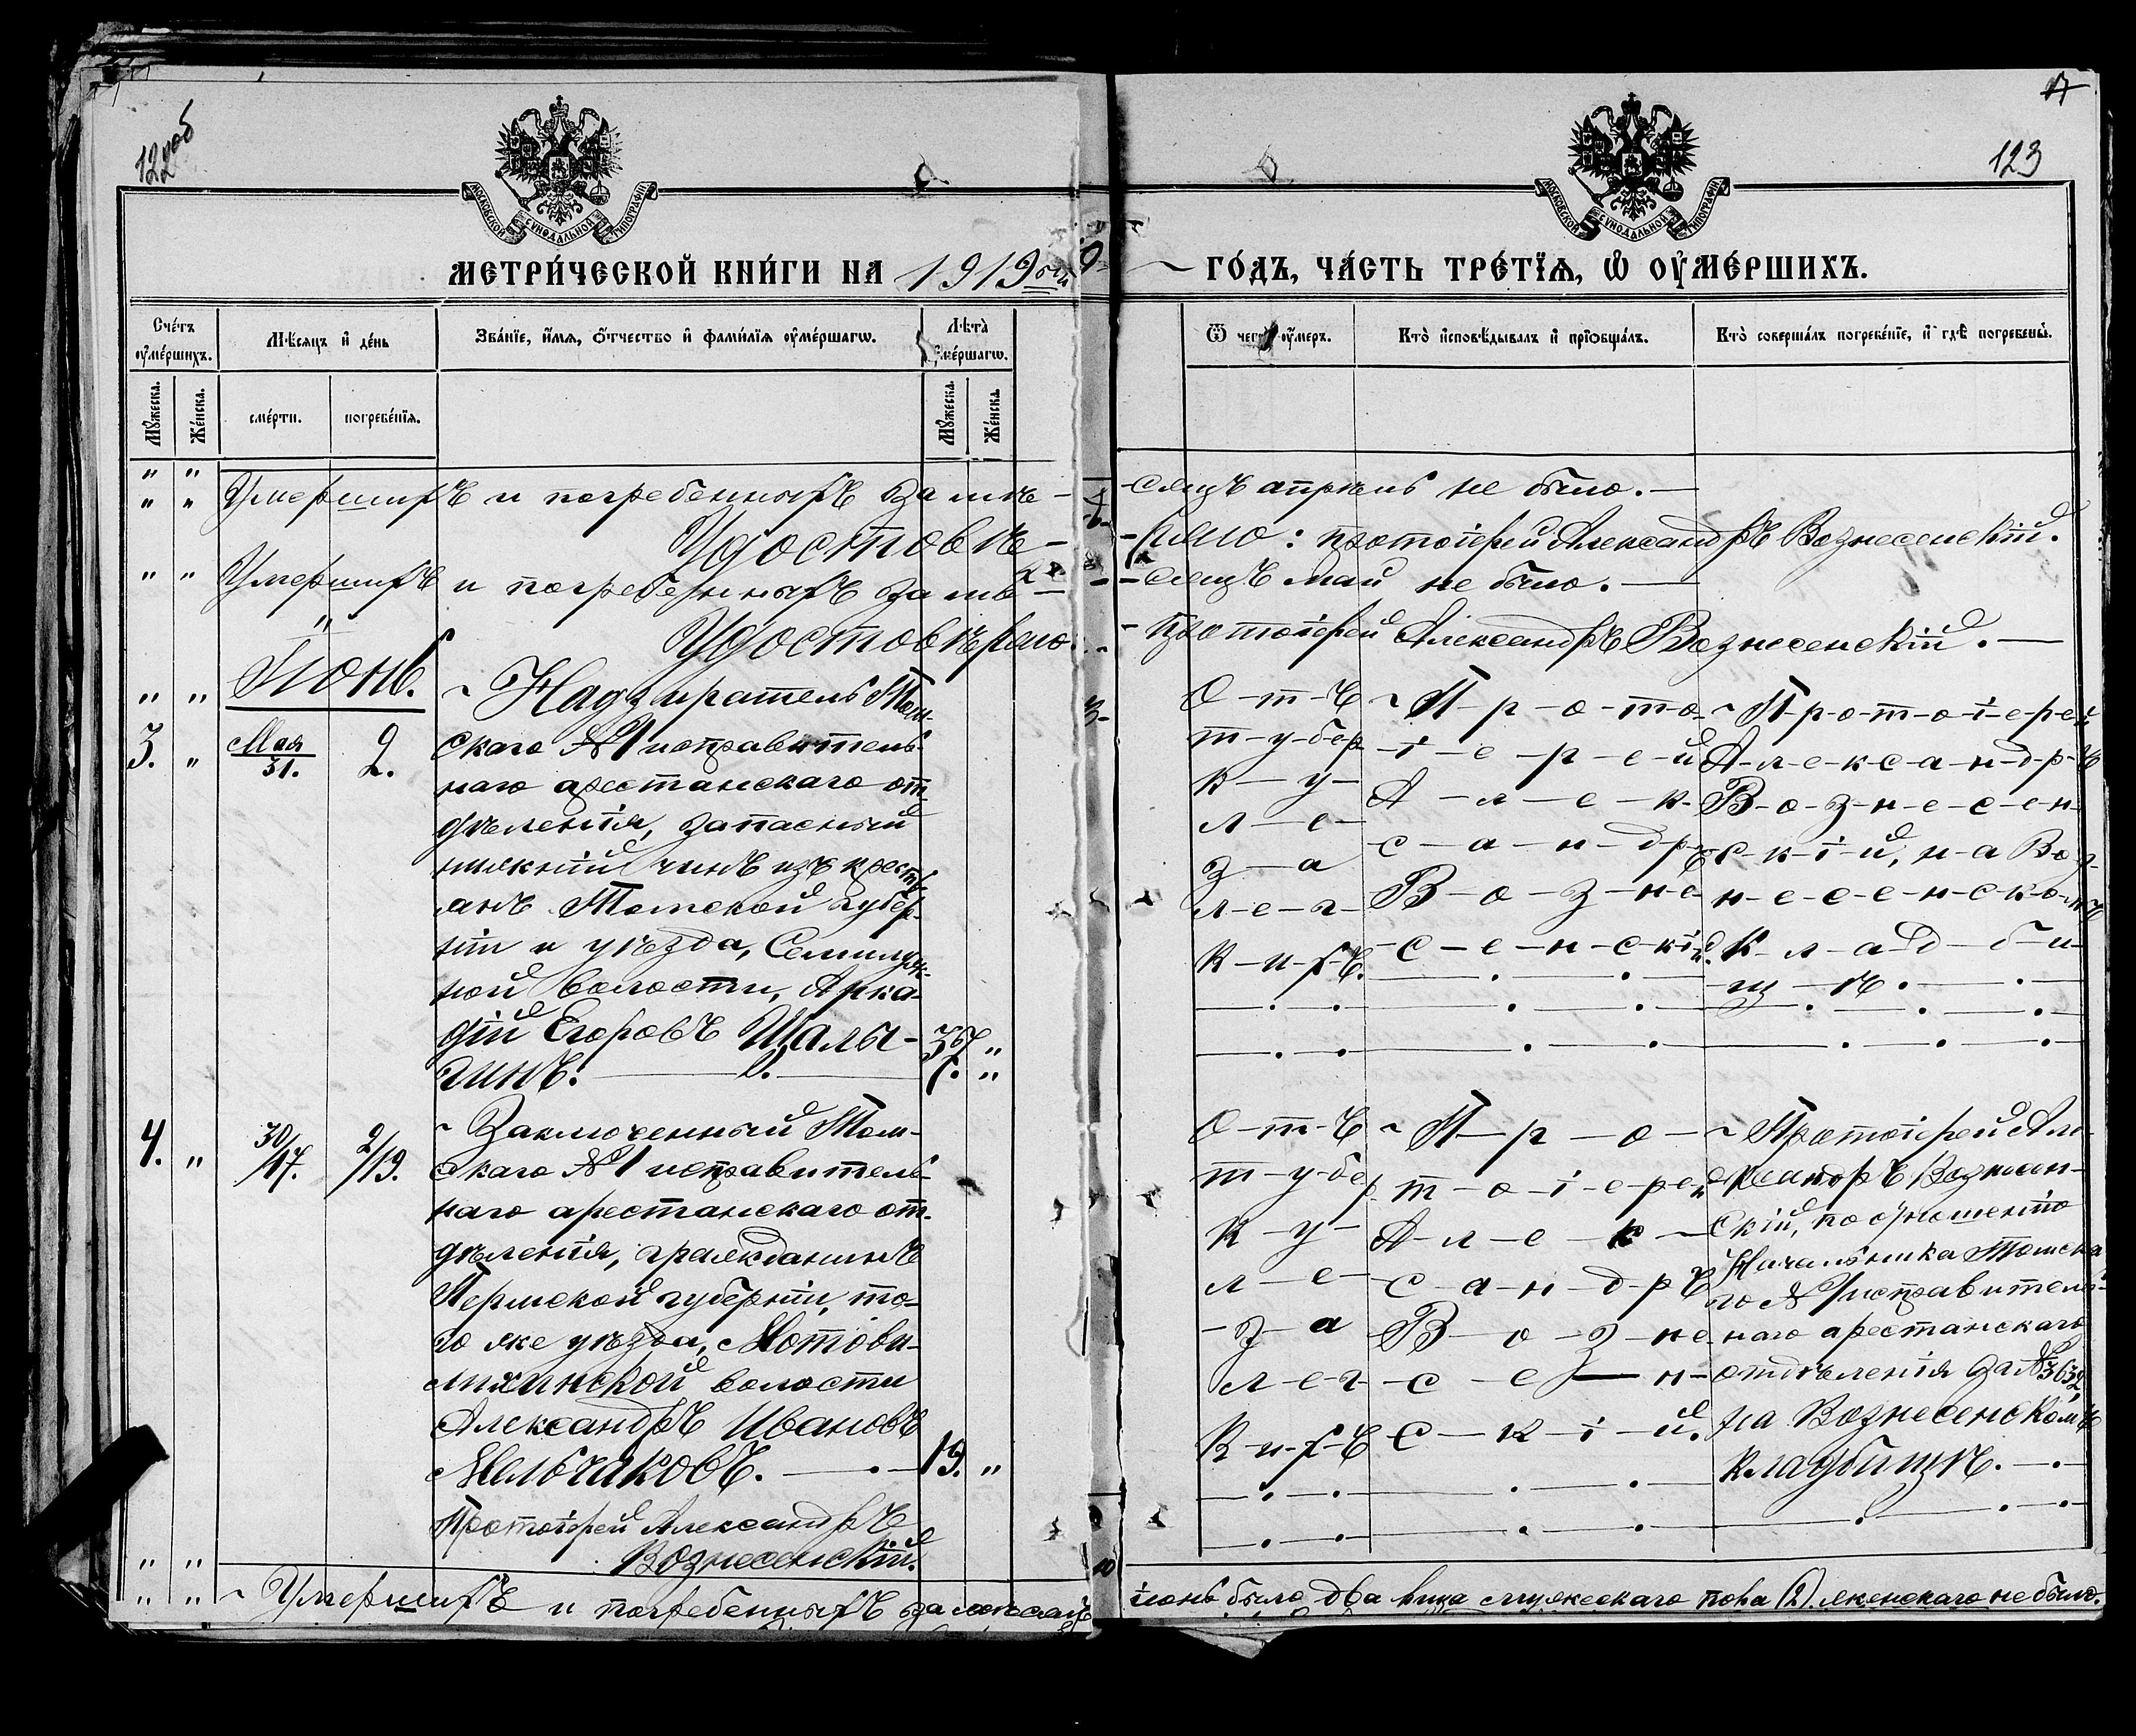 122 об
123
МОСКОВСКОЙ СУНОДАЛЬНОЙ ТИПОГРАФІИ
МОСКОВСКОЙ СУНОДАЛЬНОЙ ТИПОГРАФІИ
МЕТРИ́ЧЕСКОЙ КНИ́ГИ НА 1919 ый
ГО́ДЪ, ЧА́СТЬ ТРЕ́ТЇѦ, Ѡ҆ ОУ҆МЕ́РШИХЪ.
Сче́тъ оу҆ме́ршихъ.
Мѣ́сяцъ и҆ де́нь
Зва́нїе, и҆́мѧ, ѻ҆́тчество и҆ фами́лїѧ оу҆ме́ршагѡ.
Лѣ̀та̀ оу҆ме́ршагѡ.
Мꙋ́жеска.
Же́нска.
сме́рти.
погребе́нїѧ.
Мꙋ́жеска.
Же́нска.
Ѿ чегѡ̀ оу҆́меръ.
Кто̀ и҆сповѣ́дывалъ и҆ прїѡбща́лъ.
Кто̀ соверша́лъ погребе́нїе, и҆ гдѣ̀ погребены̀.
" "
" " Умершихъ и погребенныхъ за мѣ-
-сяцъ апрѣль не было.—
Удостовѣ-
-ряю: протоіерей Александръ Вознесенскій.
" " Умершихъ и погребенныхъ за мѣ-
-сяцъ май не было.—
Удостовѣряю.
- протоіерей Александръ Вознесенскій.—
" " Іюнь.
3. " Мая 31. 2.
~ Надзиратель Том-
скаго №1 исправитель-
наго арестанскаго от-
дѣленія, запасный
нижній чинъ изъ кресть-
анъ Томской губер-
ніи и уѣзда, Семилуж-
ной волости, Арка-
дій Егоровъ Шалы-
гинъ.
37 "
г. "
О-т-ъ
т-у-бер
к-у-
л-е-
з-а
л-е-г-
к-и-х-ъ.
~ П-р-о-то-
-і-е-р-е-й
А-л-е-к-
с-а-н-д-ръ
В-о-з-не-
-с-е-н-с-кій.
~ П-р-о-т-о-і-е-р-ей
А-л-е-к-с-а-н-д-р-ъ
В-о-з-н-е-с-е-н-
с-к-і-й, н-а Воз-
н-е-с-е-н-с-к-о-мъ
к-л-а-д-б-и-
щ-ѣ.
4. " 30/17. 2/19.
~ Заключенный Том-
скаго №1 исправитель-
наго арестанскаго от-
дѣленія, гражданинъ
Пермской губерніи, то-
го же уѣзда, Мотови-
лихинской волости
Александръ Ивановъ
Мельчаковъ.
19. "
О-т-ъ
т-у-бер
к-у-
л-е-
-з-а
л-е-г-
к-и-х-ъ
~ П-р-о-
т-о-і-е-рей
А-л-е-к-
с-а-н-д-ръ
В-о-з-не-
-с-е-н-
с-к-і-й.
~ Протоіерей Але-
ксандръ Вознесен-
скій, по отношенію
Начальника Томска-
го №1 исправитель-
наго арестанскаго
отдѣленія за №3632,
на Вознесенскомъ
кладбищѣ.
Протоіерей Александръ
Вознесенскій.
" "
" " ~ Умершихъ и погребенныхъ за мѣсяцъ
іюнь было два лица мужескаго пола (2) женскаго не было.